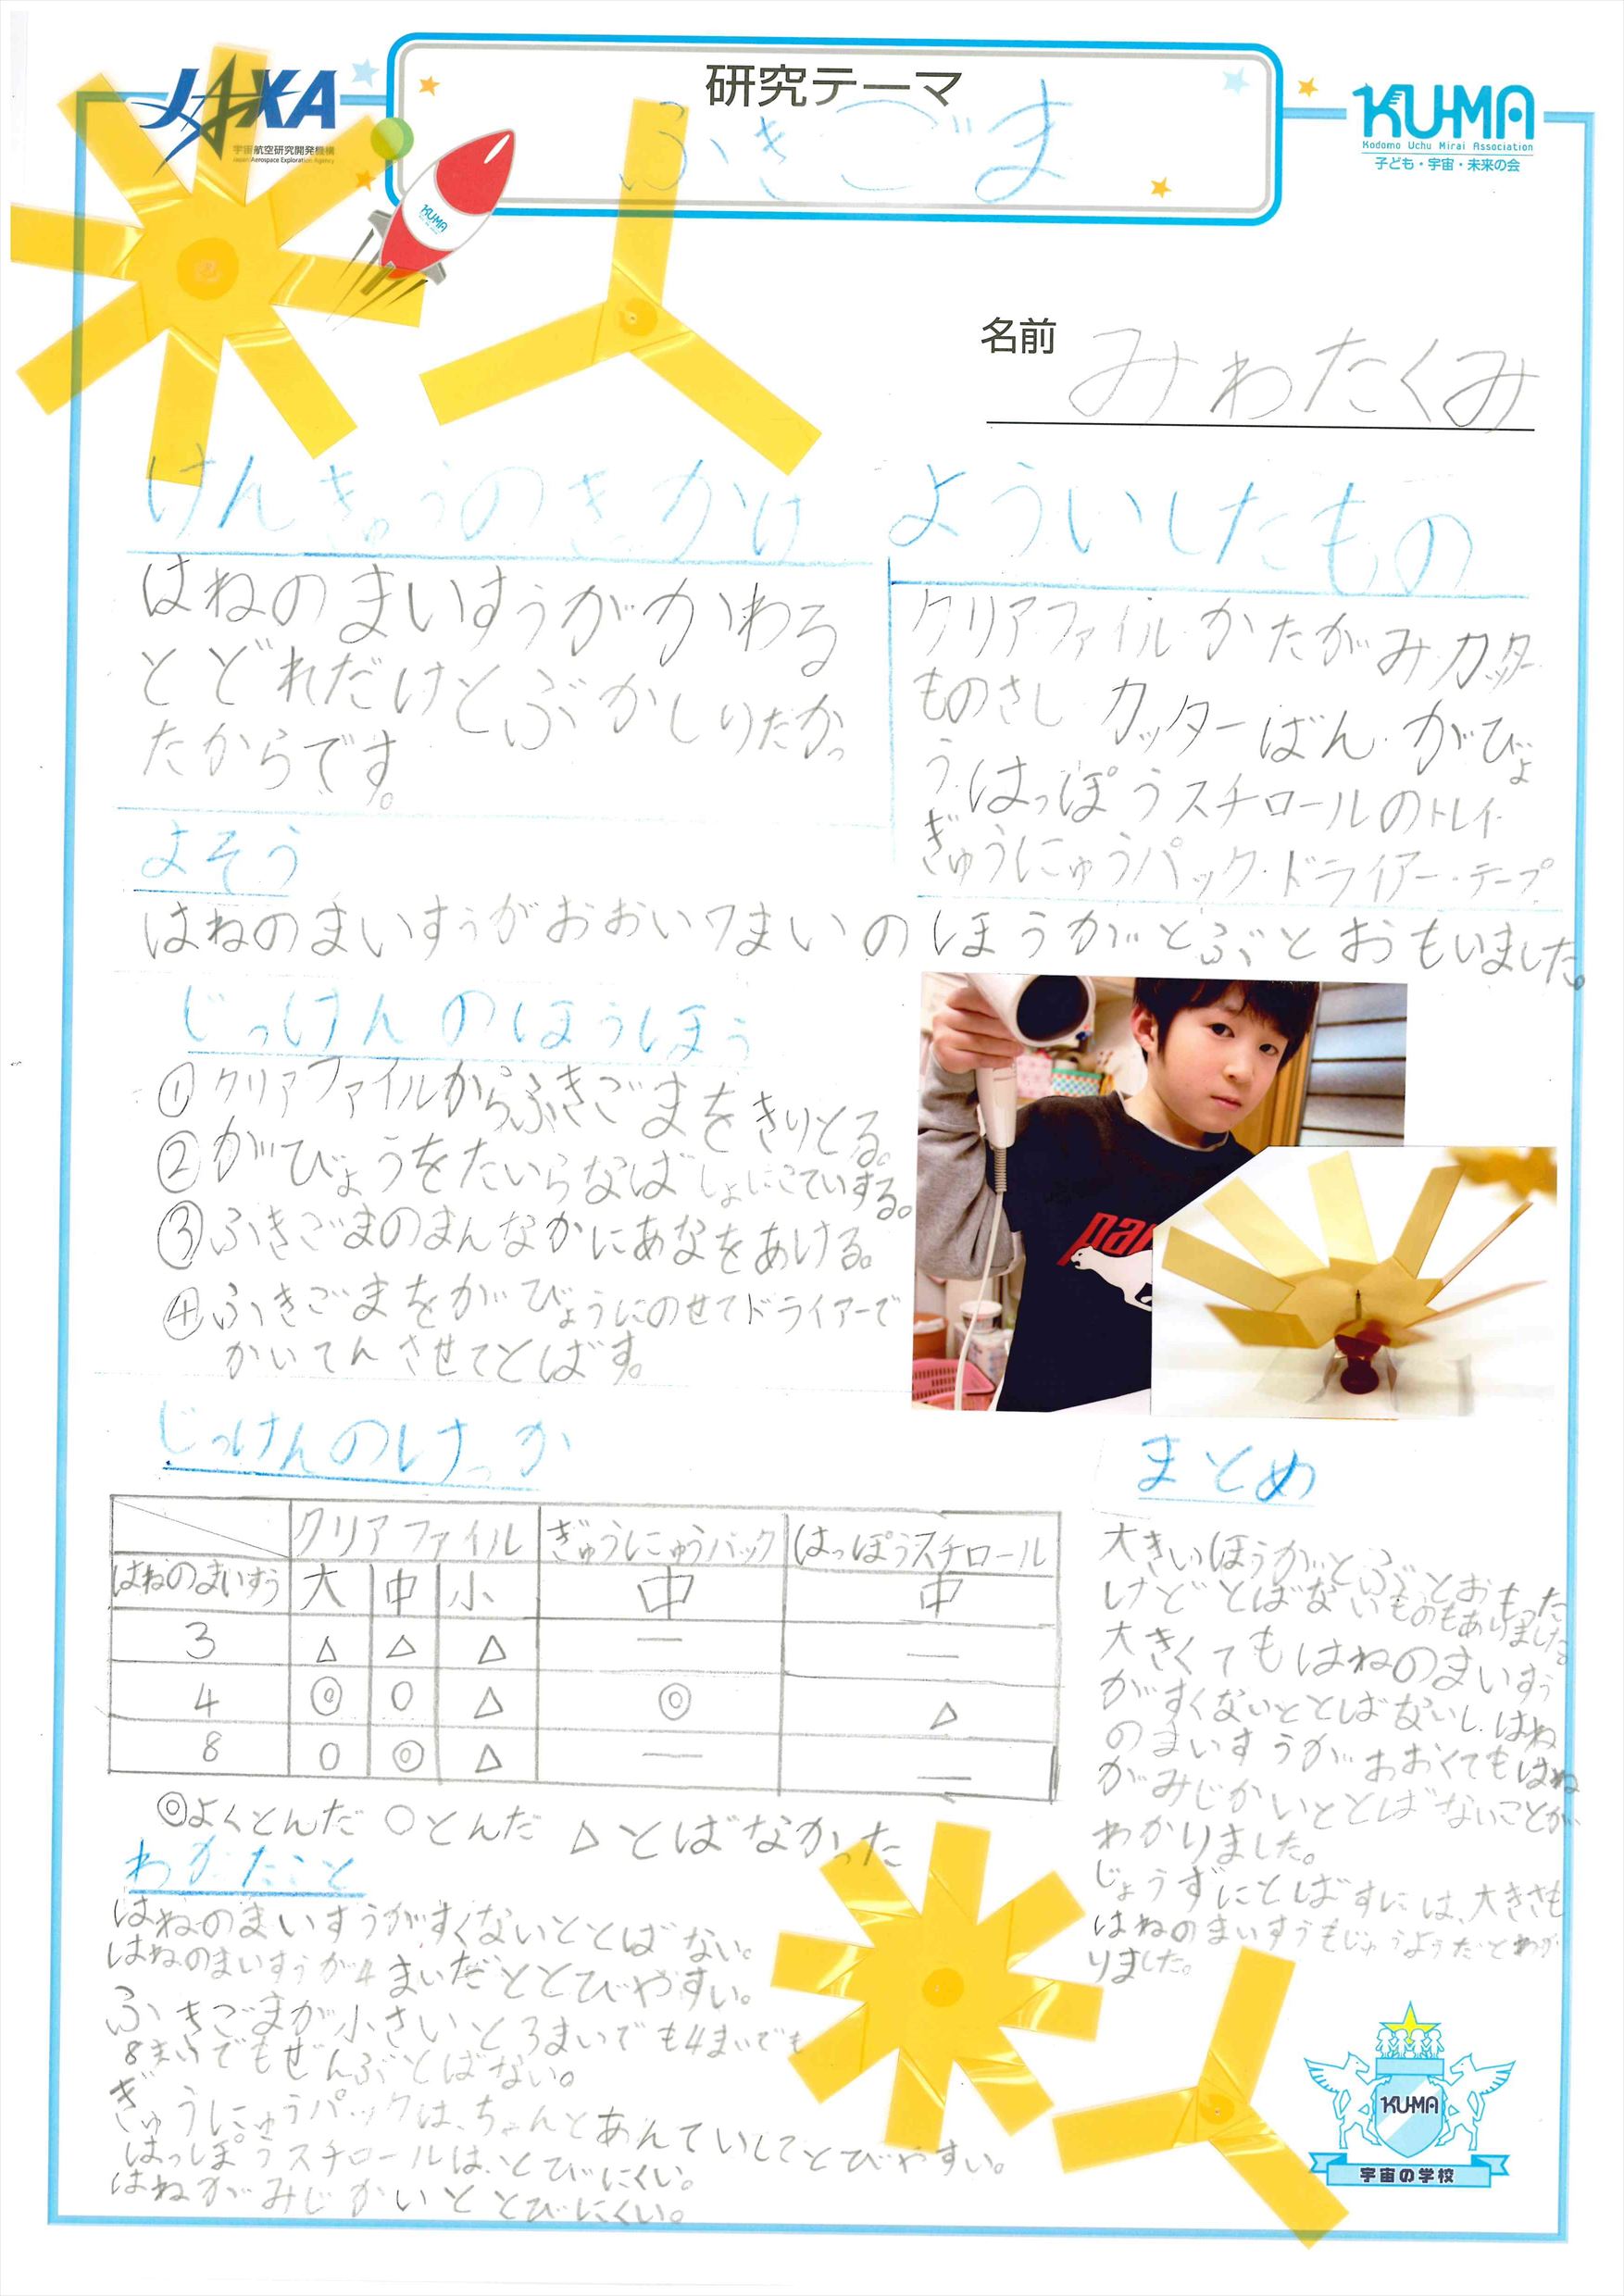 JAXA
宇宙航空研究開発機構
Japan Aerospace Exploration Agency
研究テーマ
ふきごま
KUMA
Kodomo Uchu Mirai Association
子ども・宇宙・未来の会
KUMA
名前 みわたくみ
けんきゅうのきっかけ
はねのまいすうがかわる
とどれだけとぶかしりたかっ
たからです。
よういしたもの
クリアファイル・かたがみ・カッター
ものさし・カッターばん・がびょ
う・はっぽうスチロールのトレイ・
ぎゅうにゅうパック・ドライアー・テープ
よそう
はねのまいすうがおおい7まいのほうがとぶとおもいました。
じっけんのほうほう
①クリアファイルからふきごまをきりとる。
②がびょうをたいらなばしょにこていする。
③ふきごまのまんなかにあなをあける。
④ふきごまをがびょうにのせてドライアーで
かいてんさせてとばす。
じっけんのけっか
クリアファイル ぎゅうにゅうパック はっぽうスチロール
はねのまいすう 大 中 小 中 中
3 △ △ △ ― ―
4 ◎ ○ △ ◎ △
8 ○ ◎ △ ― ―
◎よくとんだ ○とんだ △とばなかった
わかったこと
はねのまいすうがすくないととばない。
はねのまいすうが4まいだととびやすい。
ふきごまが小さいと3まいでも4まいでも
8まいでもぜんぶとばない。
ぎゅうにゅうパックは、ちゃんとあんていしてとびやすい。
はっぽうスチロールは、とびにくい。
はねがみじかいととびにくい。
まとめ
大きいほうがとぶとおもった
けどとばないものもありました。
大きくてもはねのまいすう
がすくないととばないし、はね
のまいすうがおおくてもはね
がみじかいととばないことが
わかりました。
じょうずにとばすには、大きさも
はねのまいすうもじゅうようだとわか
りました。
KUMA
宇宙の学校